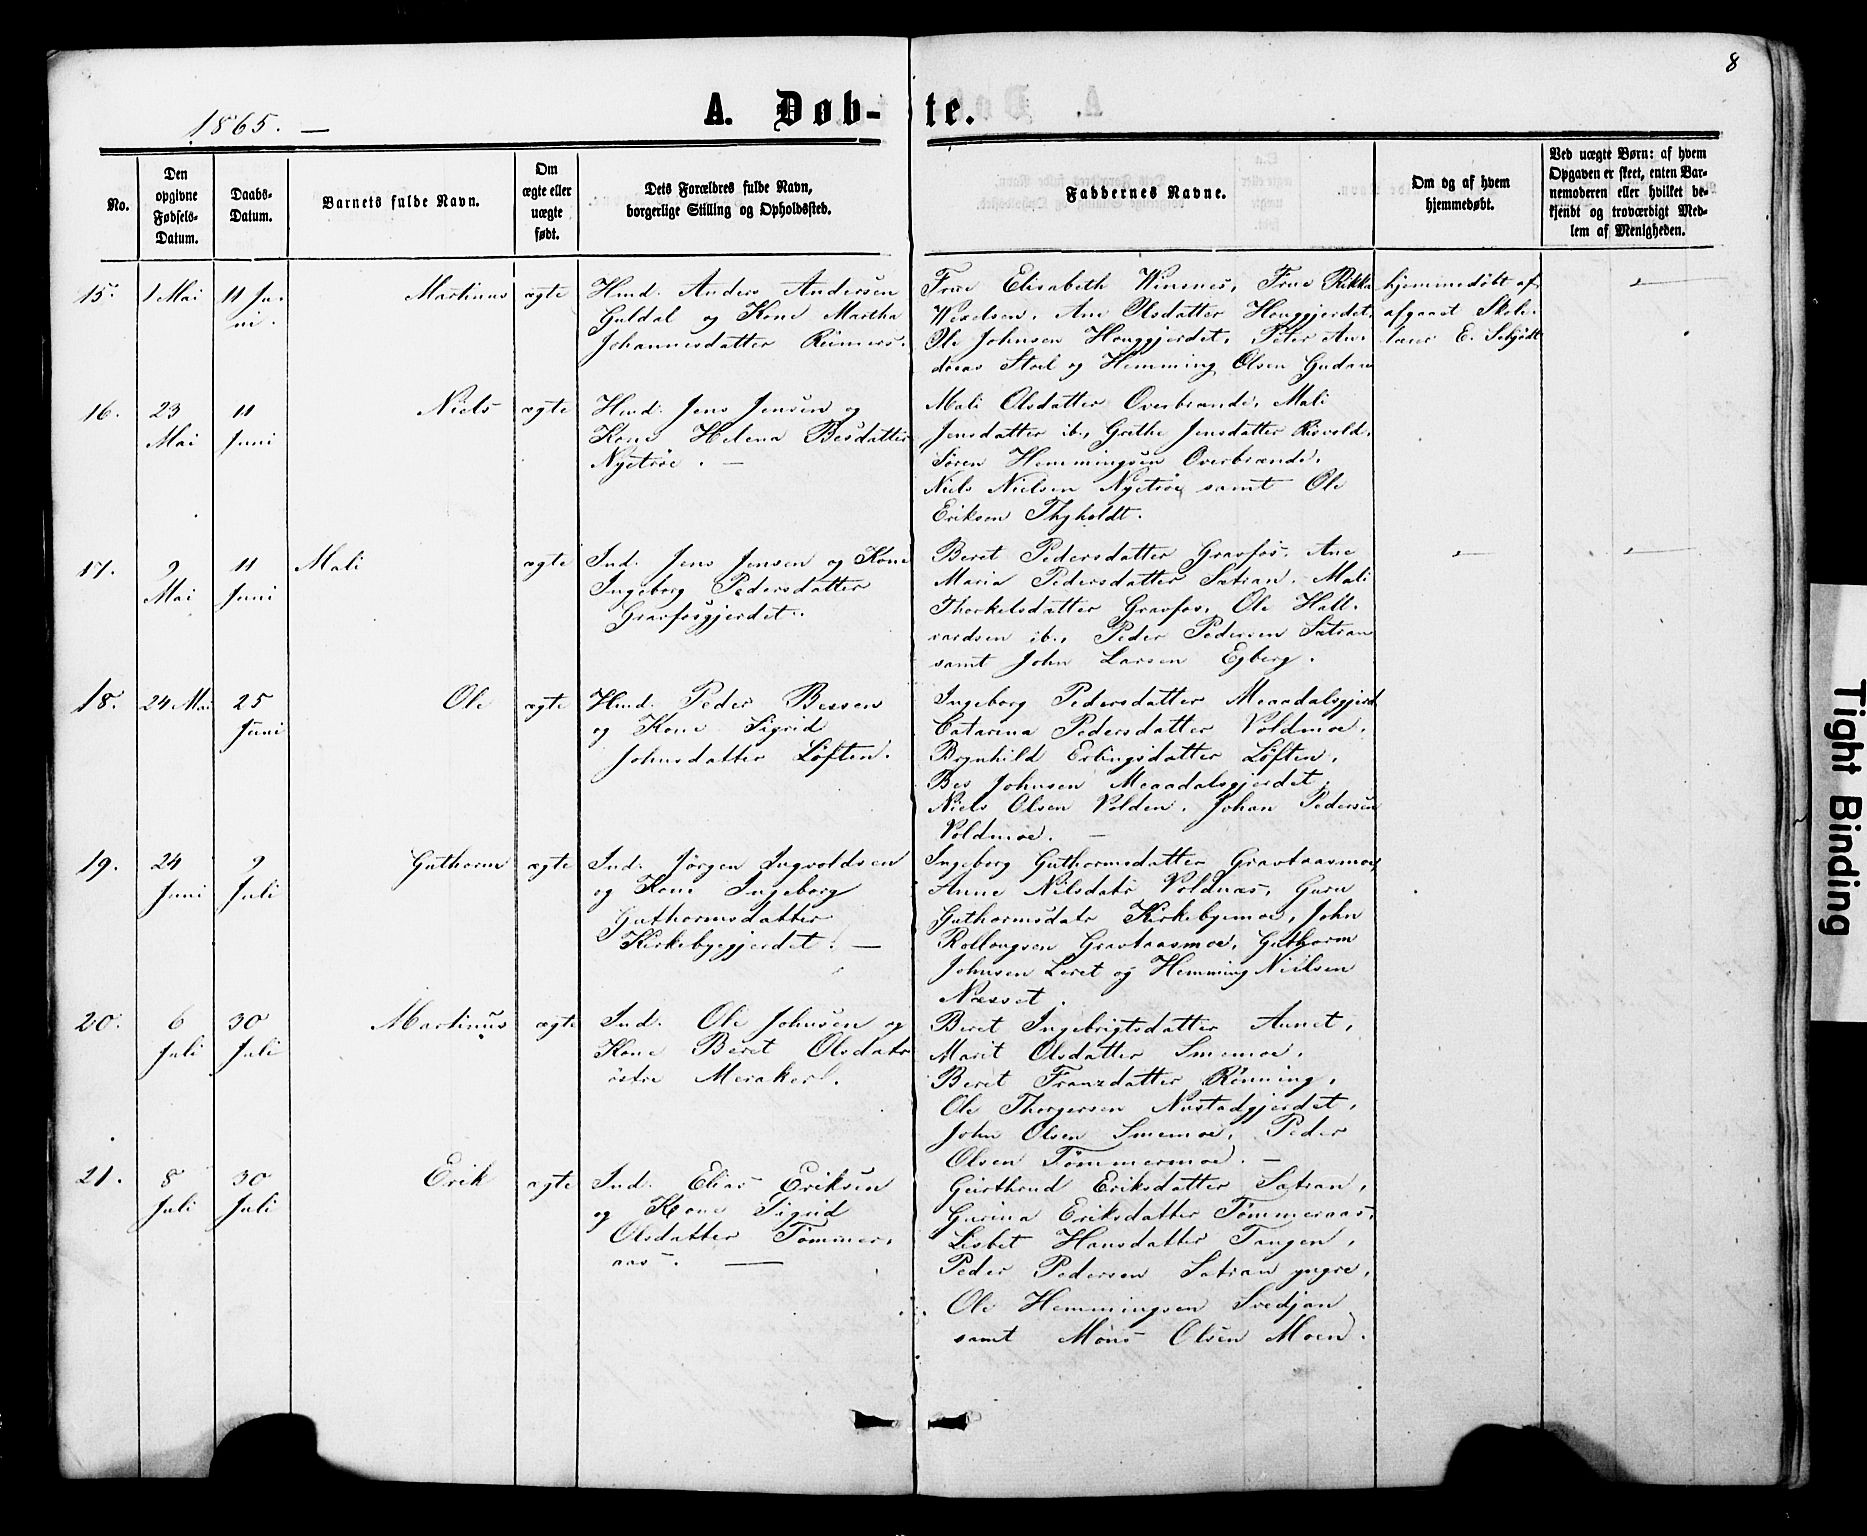 8
1865. —
A. Døb-te.
No.
Den
opgivne
Fødsels-
Datum.
Daabs-
Datum.
Barnets fulde Navn.
Om
ægte eller
uægte
født.
Dets Forældres fulde Navn,
borgerlige Stilling og Opholdssted.
Faddernes Navne.
Om og af hvem
hjemmedøbt.
Ved uægte Børn: af hvem
Opgaven er skeet, enten Bar-
nemoderen eller hvilket be-
kjendt og troværdigt Med-
lem af Menigheden.
15.
1 Mai
11 Ju-
ni.
Martinus
ægte
Hmd. Anders Andersen
Guldal og Kone Martha
Johannesdatter Reimers.
Frue Elisabeth Winsnes, Frue Rikke
Wexelsen, Ane Olsdatter Houggjerdet,
Ole Johnsen Houggjerdet, Peter An-
dreas Stoel og Hemming Olsen Gudaa
hjemmedøbt af
afgaaet Skole-
lærer E. Schjødt
16.
23
Mai
11
Juni
Niels
ægte
Hmd. Jens Jensen og
Kone Helena Besdatter
Nyetrøe. —
Mali Olsdatter Overbrande, Mali
Jensdatter ib., Grethe Jensdatter Risvold,
Søren Hemmingsen Overbrande,
Niels Nielsen Nyetrøe samt Ole
Eriksen Thyholdt.
17.
9
Mai
11
Juni
Mali
ægte
Ind. Jens Jensen og Kone
Ingeborg Pedersdatter
Gravfosgjerdet.
Beret Pedersdatter Gravfos, Ane
Maria Pedersdatter Sætran, Mali
Thorkelsdatter Gravfos, Ole Hall-
vardsen ib., Peder Pedersen Sætran
samt John Larsen Egberg.
18.
24 Mai
25
Juni
Ole
ægte
Hmd. Peder Bessen
og Kone Sigrid
Johnsdatter Løften.
Ingeborg Pedersdatter Meaadalsgjerd
Catarina Pedersdatter Voldmoe,
Brynhild Erlingsdatter Løften,
Bes Johnsen Meaadalsgjerdet,
Niels Olsen Volden, Johan Pedersen
Voldmoe. —
19.
24
Juni
9
Juli
Guthorm
ægte
Ind. Jørgen Ingvoldsen
og Kone Ingeborg
Guthormsdatter
Kirkebygjerdet. —
Ingeborg Guthormsdatter Gravaasmoe,
Anne Nilsdatr Voldnæs, Guru
Guthormsdatr Kirkebymoe, John
Gravaasmoe, Guthorm
Johnsen Leret og Hemming Nielsen
Næsset.
20.
6
Juli
30
Juli
Martinus
ægte
Ind. Ole Johnsen og
Kone Beret Olsdatr
östre Meraker.
Beret Ingebrigtsdatter Aunet,
Marit Olsdatter Smemoe,
Beret Franzdatter Rönning,
Ole Thorgersen Nustadgjerdet,
John Olsen Smemoe, Peder
Olsen Tömmermoe. —
21.
8
Juli
30
Juli
Erik
ægte
Ind. Elias Eriksen
og Kone Sigrid
Olsdatter Tömmer-
aas. —
Geirthrud Eriksdatter Sætran,
Gurina Eriksdatter Tömmeraas,
Lisbet Hansdatter Tangen,
Peder Pedersen Sætran yngre,
Ole Hemmingsen Svedjan
samt Möns Olsen Moen.
Tight Binding